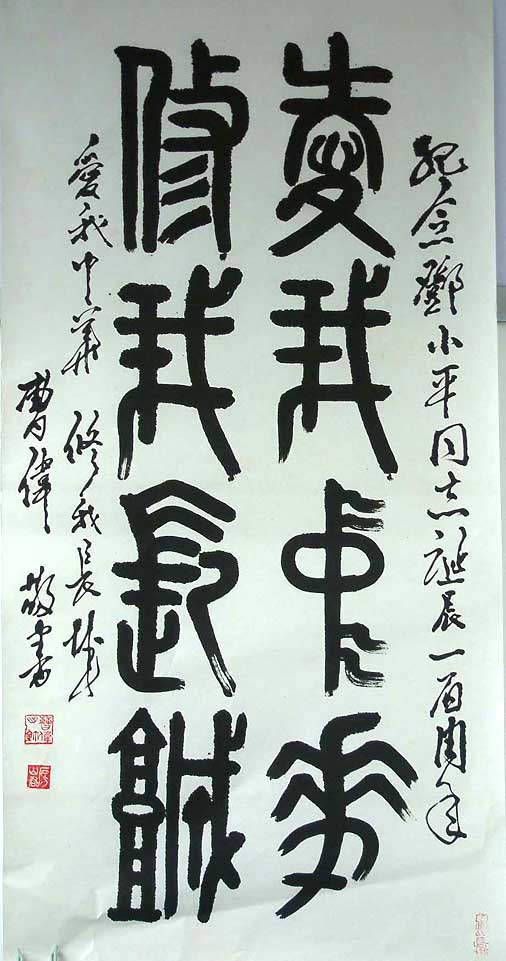 紀念鄧小平同志誕辰一百周年
愛我中華
修我長城
愛我中華 修我長城
曹偉 敬書